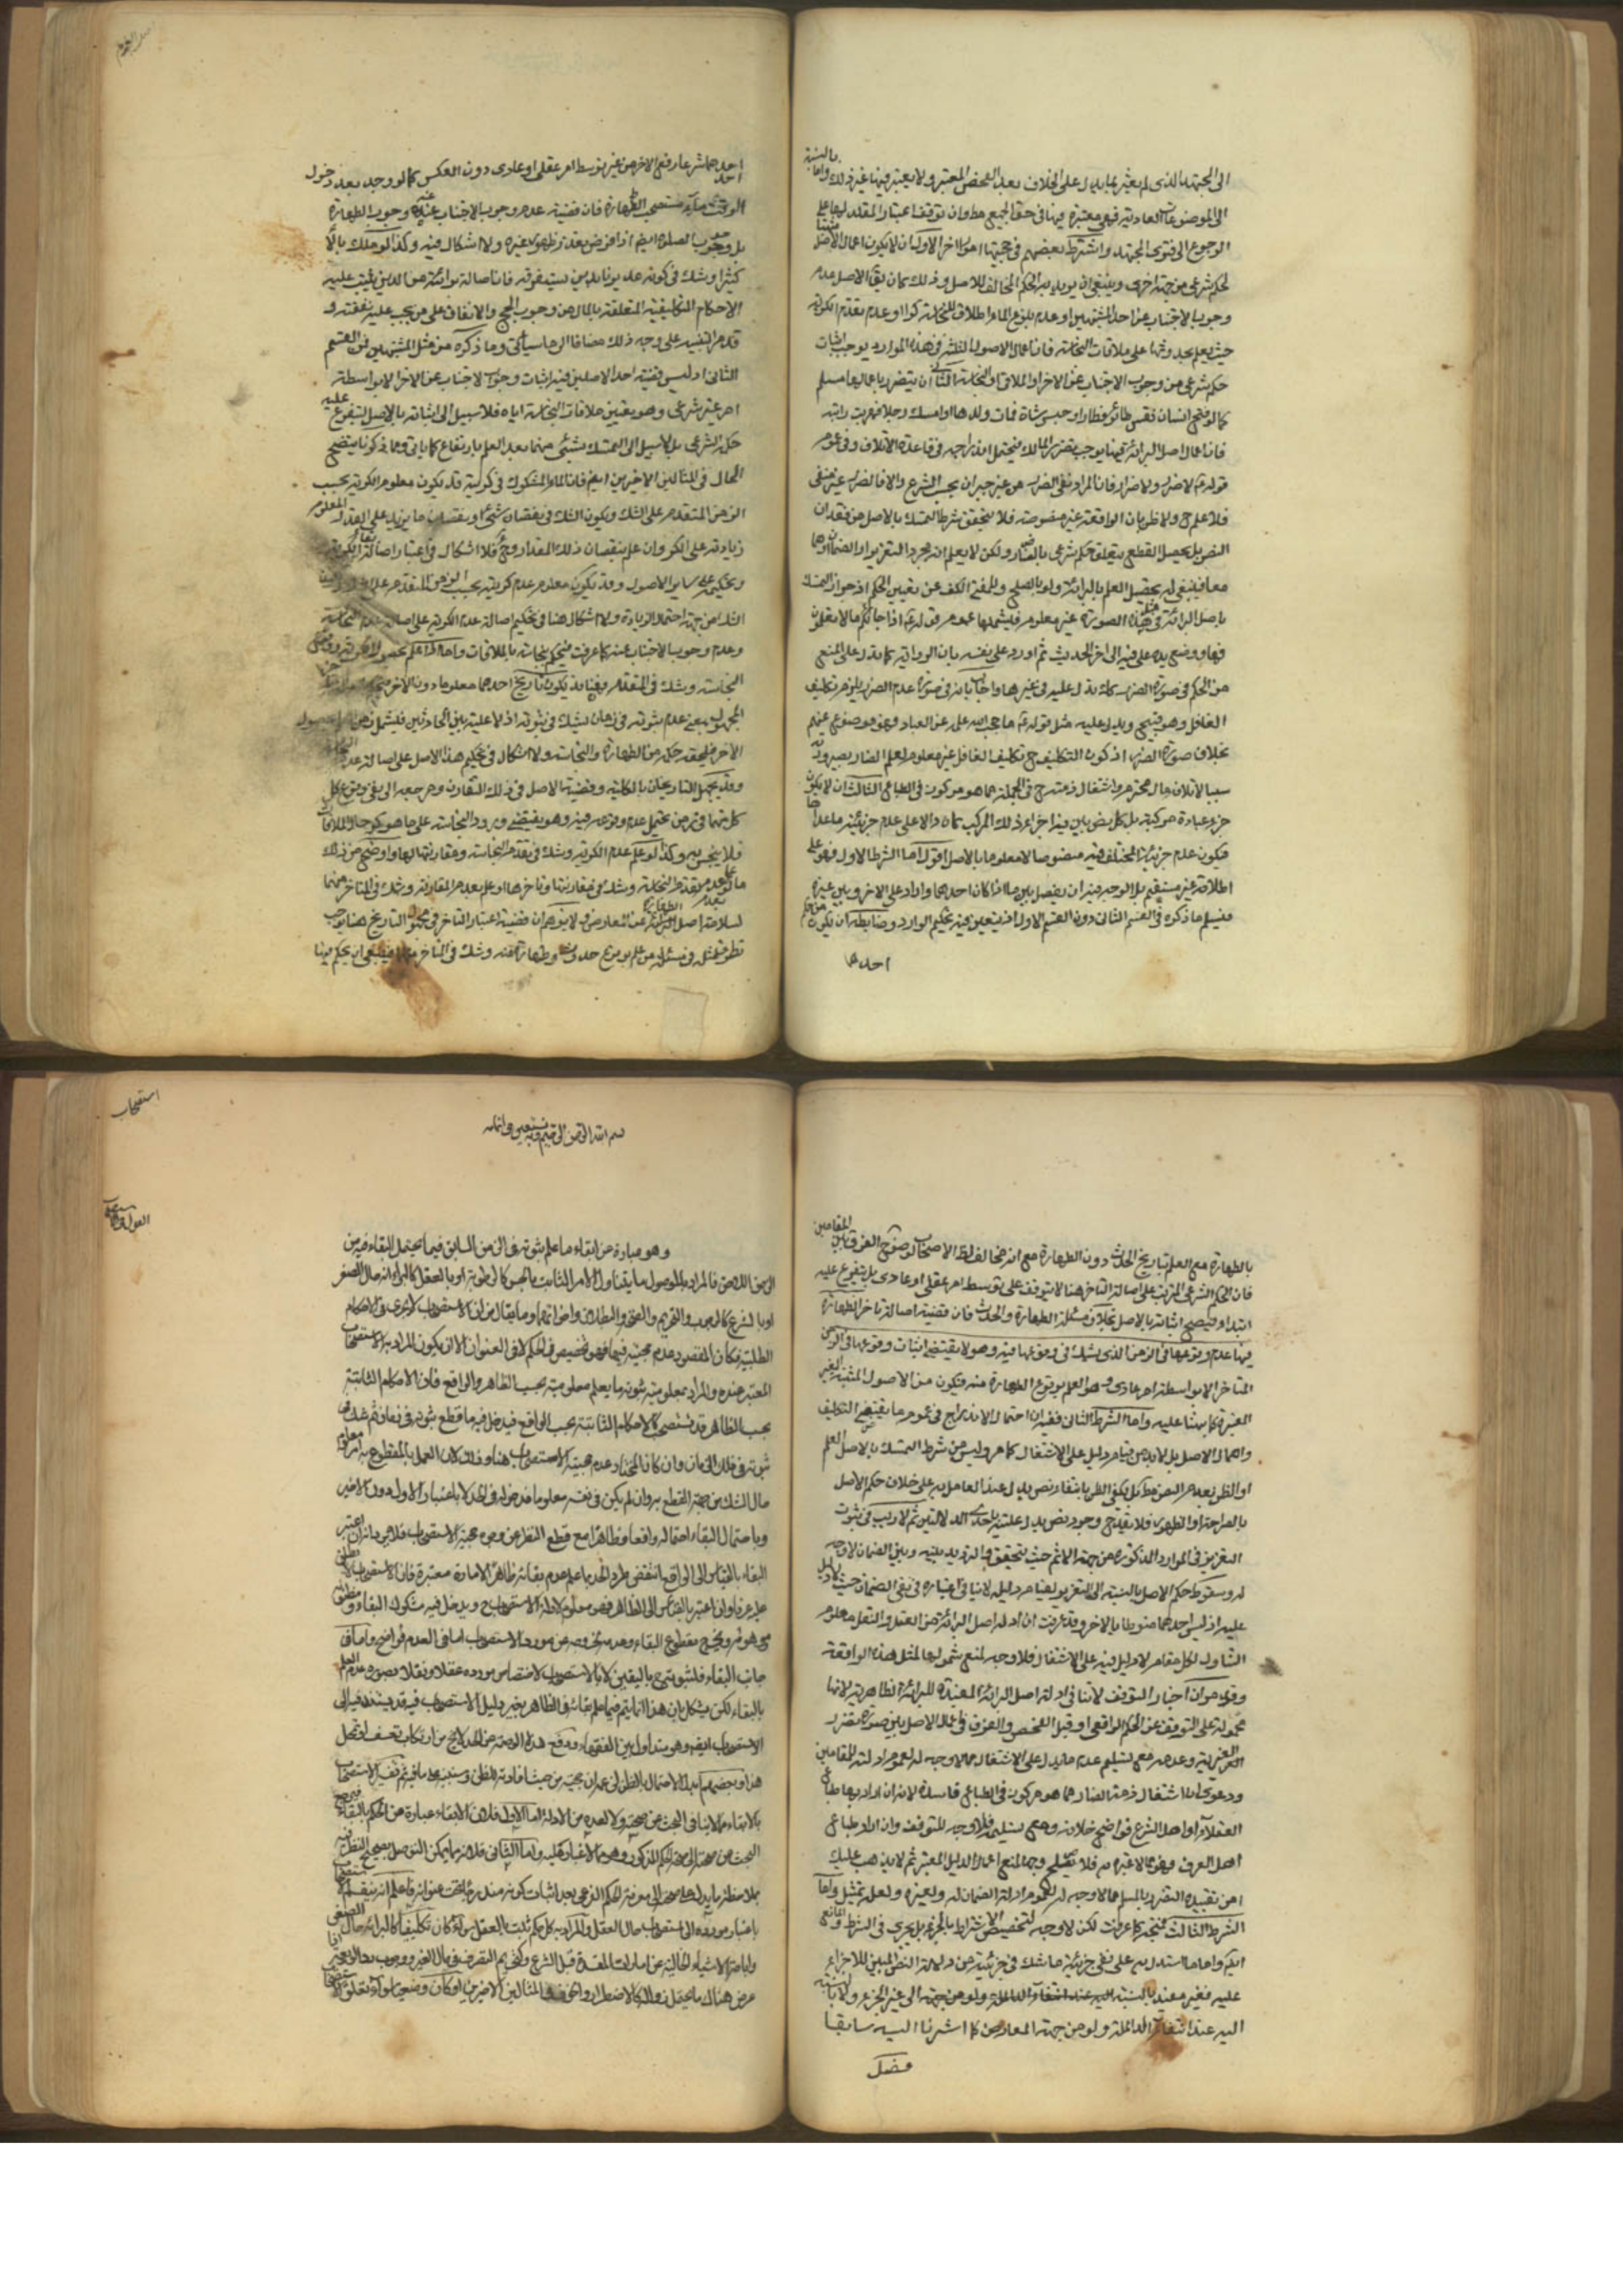 الى المجتهد الذى لم يعثر بما يدل على الخلاف بعد الفحص المعتبر ولا يعتبر فيها غير ذلك واما بالنسبة
الى الموضوعات العادية فهى معتبرة فيها فى حق الجميع مط وان توقف اعتبار المقلد لها على
الرجوع الى فتوى المجتهد واشترط بعضهم فى حجيتها امورا اخر الاول ان لا يكون اعمال الاصل مثبتا
لحكم شرعى من جهة اخرى وينبغى ان يريد به الحكم المخالف للاصل وذلك كان يق الاصل عدم
وجوب الاجتناب عن احد المشتبهين او عدم بلوغ الماء الملاقى للنجاسة كرا او عدم تقدم الكرية
حيث يعلم بحدوثها على ملاقات النجاسة فان اعمال الاصول الثلثة فى هذه الموارد يوجب اثبات
حكم شرعى من وجوب الاجتناب عن الاخر او الملاقى او النجاسة الثانى ان يتضرر باعمالها مسلم
كما لو فتح انسان قفس طائر فطار او حبس شاة فمات ولدها او امسك رجلا فهربت دابته
فان اعمال اصل البرائة فيها يوجب تضرر المالك فيحتمل اندراجه فى قاعدة الاتلاف وفى عموم
قوله ع لا ضرر ولا ضرار فان المراد نفى الضرر من غير جبران بحسب الشرع والا فالضرر غير منفى
فلا علم ح ولا ظن بان الواقعة غير منصوصة فلا يتحقق شرط التمسك بالاصل من فقدان
النص بل يحصل القطع بتعلق حكم شرعى بالضار ولكن لا يعلم انه مجرد التعزير او الضمان او هما
معا فينبغى له تحصيل العلم بالبرائة ولو بالصلح وللمفتى الكف عن تعيين الحكم اذ جواز التمسك
باصل البرائة فى هذه الصورة غير معلوم فيشملها عموم قوله ع اذا جائكم ما لا تعلمون
فها ووضع يده على فيه الى اخر الحديث ثم اورد على نفسه بان الرواية كما تدل على المنع
من الحكم فى صورة الضرر كك تدل عليه فى غيرها واجاب بان فى صورة عدم الضرر يلزم تكليف
الغافل وهو قبيح ويدل عليه مثل قوله ع ما حجب الله علمه عن العباد فهو موضوع عنهم
بخلاف صورة الضرر اذ كون التكليف ح تكليف الغافل غير معلوم لعلم الضار بصيرورته
سببا لاتلاف مال محترم واشتغال ذمته ح فى الجملة مما هو مركوز فى الطباع الثالث ان لا يكون
جزء عبادة مركبة بل كل نص بين فيه اجزاء ذلك المركب كان دالا على عدم جزئية ما عداها
فيكون عدم جزئية المختلف فيه منصوصا لا معلوما بالاصل اقول اما الشرط الاول فهو على
اطلاقه غير مستقيم بل الوجه فيه ان يفصل بين ما اذا كان احدهما واردا على الاخر وبين غيره
فيسلم ما ذكره فى القسم الثانى دون القسم الاول اذ يتعين فيه تحكيم الوارد وضابطه ان يكون
احدهما
احدهما شرعا رفع الاخر من غير توسط امر عقلى او عادى دون العكس كما لو وجد بعد دخول
الوقت ماء مستصحب الطهارة فان قضية عدم وجوب الاجتناب عنه وجوب الطهارة
بل وجوب الصلوة ايضا اذا فرض بعد تطهره غيره ولا اشكال فيه وكذا لو ملك مالا
كثيرا وشك فى كونه مديونا بدين يستغرقه فان اصالة برائته من الدين يثبت عليه
الاحكام التكليفية المتعلقة بالمال من وجوب الحج والانفاق على من يجب عليه نفقته و
قد مر التنبيه على وجه ذلك مضافا الى ما سيأتى وما ذكره من مثل المشتبهين فمن القسم
الثانى اذ ليس قضية احد الاصلين فيه اثبات وجوب الاجتناب عن الاخر الا بواسطة
امر غير شرعى وهو تعيين ملاقات النجاسة اياه فلا سبيل الى اثباته بالاصل ليتفرع عليه
حكمه الشرعى بل لا سبيل الى التمسك بشئ منهما بعد العلم بارتفاع كما ياتى ومما ذكرنا يتضح
الحال فى المثالين الاخيرين ايضا فان الماء المشكوك فى كريته قد يكون معلوم الكرية بحسب
الزمن المتقدم على الشك ويكون الشك فى نقصان شئ او نقصان ما يزيد على القدر المعلوم
زيادته على الكر وان علم بنقصان ذلك المقدار وح فلا اشكال فى اعتبار اصالة بقاء الكرية
وتحكيمه على ساير الاصول وقد يكون معلوم عدم كريته بحسب الزمن المتقدم على
الشك من جهة احتمال الزيادة ولا اشكال هنا فى تحكيم اصالة عدم الكرية على اصالة عدم النجاسة
وعدم وجوب الاجتناب عنه كما عرفت فيحكم بنجاسته بالملاقات واما اذا علم بحصول الكرية ووقوع
النجاسة وشك فى المتقدم منهما فقد يكون تاريخ احدهما معلوما دون الاخر
المجهول بمعنى عدم ثبوته فى زمان يشك فى ثبوته اذ لا علية بين الحادثين فيشمل زمن حصول
الاخر فيلحقه حكمه من الطهارة والنجاسة ولا اشكال فى تحكيم هذا الاصل على اصالة عدم النجاسة
وقد يجهل التاريخان بالكلية وقضية الاصل فى ذلك التقارن ومرجعه الى نفى وقوع كل
كل منهما فى زمن يحتمل عدم وقوعه فيه وهو يقتضى ورود النجاسة على ما هو كر حال الملاقات
فلا ينجس به وكذا لو علم عدم الكرية وشك فى تقدم النجاسة ومقارنتها لها واوضح من ذلك
ما لو علم عدم تقدم النجاسة وشك فى مقارنتها وتاخرها او علم بعدم المقارنة وشك فى المتاخر منهما
لسلامة اصل الطهارة عن المعارض ولا يتوهم ان قضية اعتبار التاخر فى مجهول التاريخ هنا يوجب
تطرق مثله فى مسئلة من علم بوقوع حدث وطهارة منه وشك فى المتاخر منهما فينبغى ان يحكم فيها
بالطهارة مع العلم بتاريخ الحدث دون الطهارة مع انه مخالف لظ الاصحاب لوضوح الفرق بين المقامين
فان الحكم الشرعى المترتب على اصالة التاخر هنا لا يتوقف على توسط امر عقلى او عادى بل يتفرع عليه
ابتداء فيصح اثباته بالاصل بخلاف مسئلة الطهارة والحدث فان قضية اصالة تاخر الطهارة
فيها عدم وقوعها فى الزمن الذى يشك فى وقوعها فيه وهو لا يقتضى اثبات وقوعها فى الزمن
المتاخر الا بواسطة امر عادى وهو العلم بوقوع الطهارة منه فيكون من الاصول المثبتة الغير
المعتبرة كما نبهنا عليه واما الشرط الثانى ففيه ان احتمال الاندراج فى عموم ما يقتضى التكليف
واهمال الاصل بل لا بد من قيام دليل على الاشتغال كما مر وليس من شرط التمسك بالاصل العلم
او الظن بعدم النص مط بل يكفى الظن بانتفاء نص يدل عند العامل به على خلاف حكم الاصل
بالصراحة او الظهور فلا يقدح وجود نص يدل عليه باحدى الدلالتين ثم لا ريب فى ثبوت
التعزير فى الموارد المذكورة من جهة الاثم حيث يتحقق والترديد بينه وبين الضمان لا وجه
له وسقوط حكم الاصل بالنسبة الى التعزير لقيام دليله لا ينافى اعتباره فى نفى الضمان حيث لا دليل
عليه اذ ليس احدهما منوطا بالاخر وقد عرفت ان ادلة اصل البرائة من العقل والنقل معلوم
التناول لكل مقام لا دليل فيه على الاشتغال فلا وجه لمنع شمولها لمثل هذه الواقعة
وقد مر ان اخبار التوقف لا تنافى ادلة اصل البرائة المفيدة للبرائة الظاهرية لانها
محمولة على التوقف عن الحكم الواقعى او قبل الفحص والفرق فى اعمال الاصل بين صورة تضرر
الغير به وعدمه مع تسليم عدم ما يدل على الاشتغال مما لا وجه له لعموم ادلته للمقامين
ودعوى ان اشتغال ذمة الضار مما هو مركوز فى الطباع فاسدة لانه ان اراد بها طباع
العقلاء او اهل الشرع فواضح خلافه ومع تسليمه فلا وجه للتوقف وان اراد طباع
اهل العرف فهو مما لا عبرة به فلا يصلح وجها لمنع اعمال الدليل المعتبر ثم لا يذهب عليك
ان تقييده التضرر بالمسلم مما لا وجه له لعموم ادلة الضمان له ولغيره ولعله تمثيل واما
الشرط الثالث فمتجه كما عرفت لكن لا وجه لتخصيص الاشتراط بالجزء بل يجرى فى الشرط والمانع
ايضا واما ما استدل به على نفى جزئية ما شك فى جزئيته من دلالة النص المبين للاجزاء
عليه فغير مفيد بالنسبة اليه عند انتفاء الدلالة ولو من جهة الى غير الجزء ولا بالنسبة
اليه عند انتفاء الدلالة ولو من جهة المعارض كما اشرنا اليه سابقا
فصل
استصحاب
بسم الله الرحمن الرحيم وبه نستعين
القول فى
وهو عبارة عن ابقاء ما علم ثبوته فى الزمن السابق فيما يحتمل البقاء فيه من
الزمن اللاحق فالمراد بالموصول ما يتناول الامر الثابت بالحس كالرطوبة او بالعقل كالبرائة حال الصغر
او بالشرع كالوجوب والتحريم والصحة والبطلان واضرابها وما يقال من ان الاستصحاب لا يجرى فى الاحكام
الطلبية فكان المقصود عدم حجيته فيها فهو تخصيص فى الحكم لا فى العنوان الا ان يكون المراد به الاستصحاب
المعتبر عنده والمراد بمعلومية ثبوته ما يعلم معلوميته بحسب الظاهر والواقع فان الاحكام الثابتة
بحسب الظاهر قد تستصحب كالاحكام الثابتة بحسب الواقع فيدخل فيه ما قطع ثبوته فى زمان ثم شك فى
ثبوته فى ذلك الزمان وان كان المختار عدم حجية الاستصحاب هنا وذلك لان العمل بالمقطوع به امر معلوم
حال الشك من جهة القطع به وان لم يكن فى نفسه معلوما فدخوله فى الحد لا باعتبار الاول دون الاخير
وباحتمال البقاء احتماله واقعا وظاهرا مع قطع النظر عن وجوه حجية الاستصحاب فلا يرد انه ان اعتبر
البقاء بالقياس الى الواقع انتقض طرد الحد بما علم عدم بقائه ظاهرا لامارة معتبرة فان الاستصحاب لا يطلق
عليه عرفا وان اعتبر بالقياس الى الظاهر فهو معلوم لادلة الاستصحاب ح ويدخل فيه مشكوك البقاء ومظنونه
وموهومه ويخرج مقطوع البقاء وعدمه لخروجه عن مورد الاستصحاب اما فى العدم فواضح واما فى
جانب البقاء فلثبوته ح باليقين لا بالاستصحاب لاختصاص مورده عقلا ونقلا بصورة عدم العلم
بالبقاء لكن يشكل بان هذا انما يتم فيما علم بقائه فى الظاهر بغير دليل الاستصحاب فيه قد يستند فيه الى
الاستصحاب ايضا وهو متداول بين الفقهاء ودفع هذه الوصمة عن الحد لا يخ من ارتكاب تعسف او تمحل
هذا وبعضهم ابدل الاحتمال بالظن لزعمه ان حجيته من حيث افادته للظن وسننبه على ما فيه ثم تفسير الاستصحاب
بالابقاء مما لا ينافى البحث عن حجيته ولا لعده من الادلة اما الاول فلان الابقاء عبارة عن الحكم بالبقاء فيرجع
البحث عن حجيته الى صحة الحكم المذكور وهو مما لا غبار عليه واما الثانى فلانه مما يمكن التوصل بصحيح النظر فيه
بملاحظة ما يدل على حجيته الى معرفة الحكم الشرعى بعد اثبات كونه مندرجا تحت عنوانه فاعلم انه ينقسم الاستصحاب
باعتبار مورده الى استصحاب حال العقل والمراد به كل حكم ثبت بالعقل سواء كان تكليفيا كالبرائة حال الصغر
واباحة الاشياء الخالية عن امارات المفسدة قبل الشرع وكتحريم التصرف فى مال الغير ووجوب رد الوديعة اذا
عرض هناك ما يحتمل زواله كالاضطرار والخوف فى المثالين الاخيرين او كان وضعيا سواء تعلق الاستصحاب